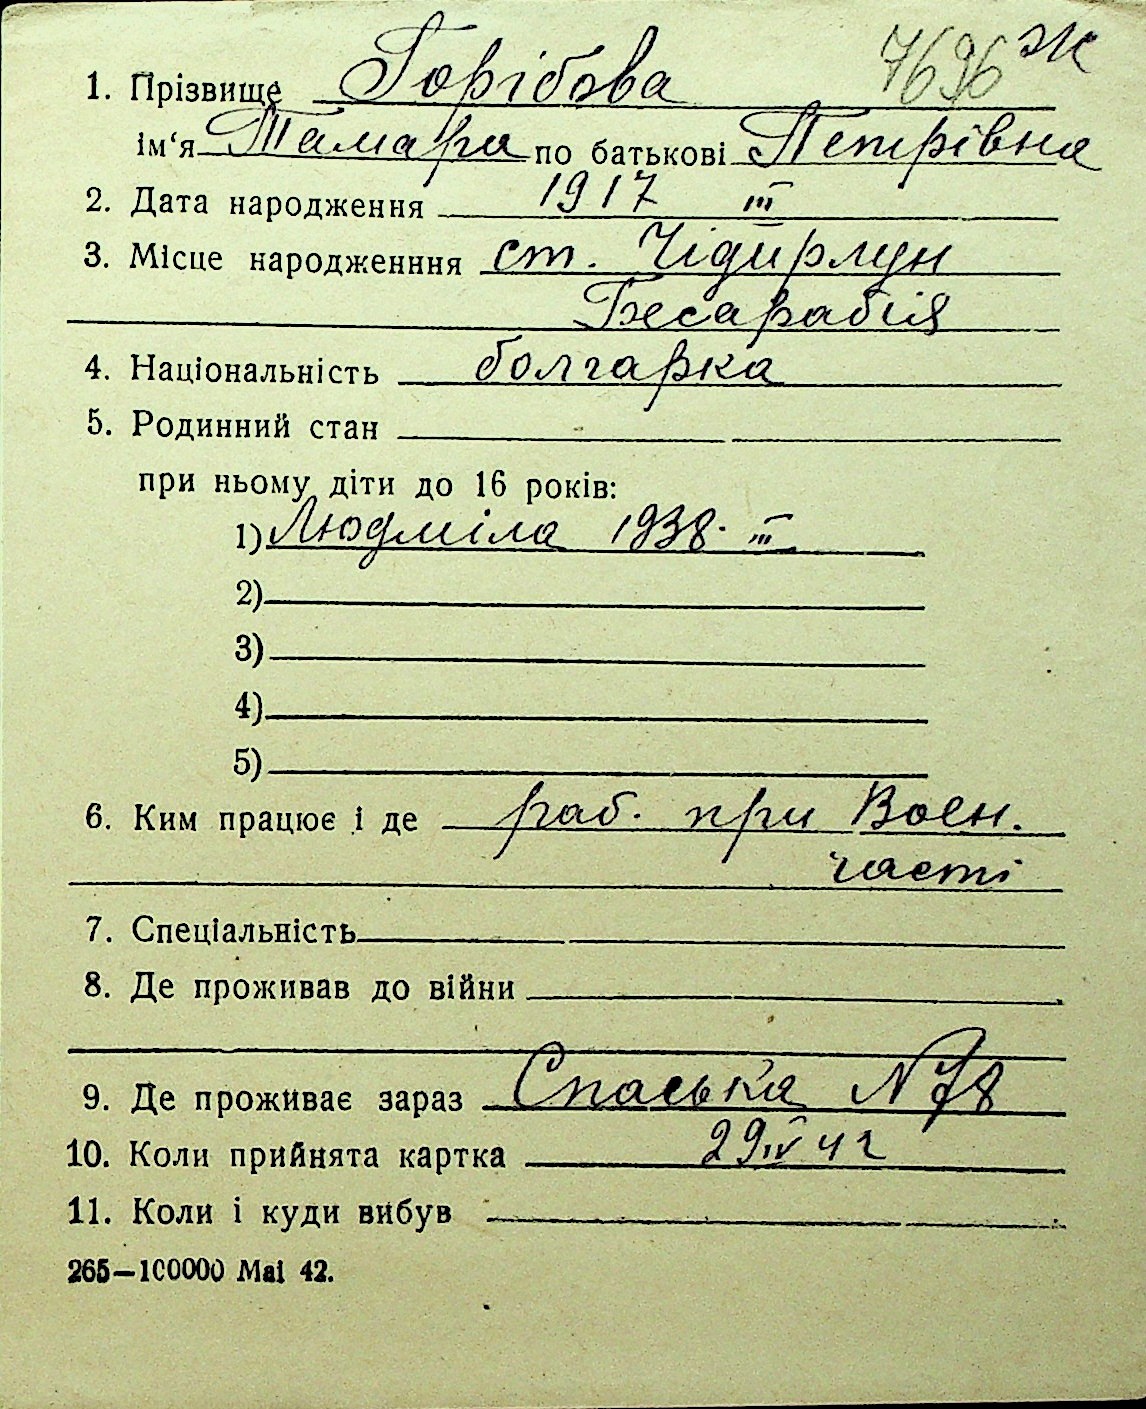 7696 Ж
1. Прізвище Горібова
ім‘я Тамара по батькові Петрівна
2. Дата народження 1917 III
3. Місце народженння ст. Чідирлун
Бесарабія
4. Національність болгарка
5. Родинний стан
при ньому діти до 16 років:
1) Людміла 1938. III
2)
3)
4)
5)
6. Ким працює і де раб. при Воен.
часті
7. Спеціальність
8. Де проживав до війни
9. Де проживає зараз Спаська N 78
10. Коли прийнята картка 29 IV 42
11. Коли і куди вибув
265—100000 Mai 42.